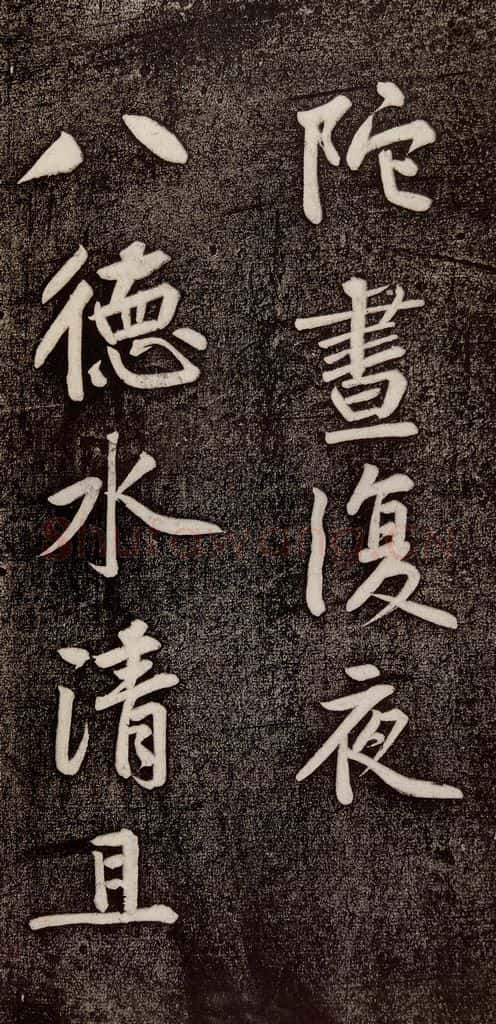 陀晝復夜
八德水清且
Shufawang.CN